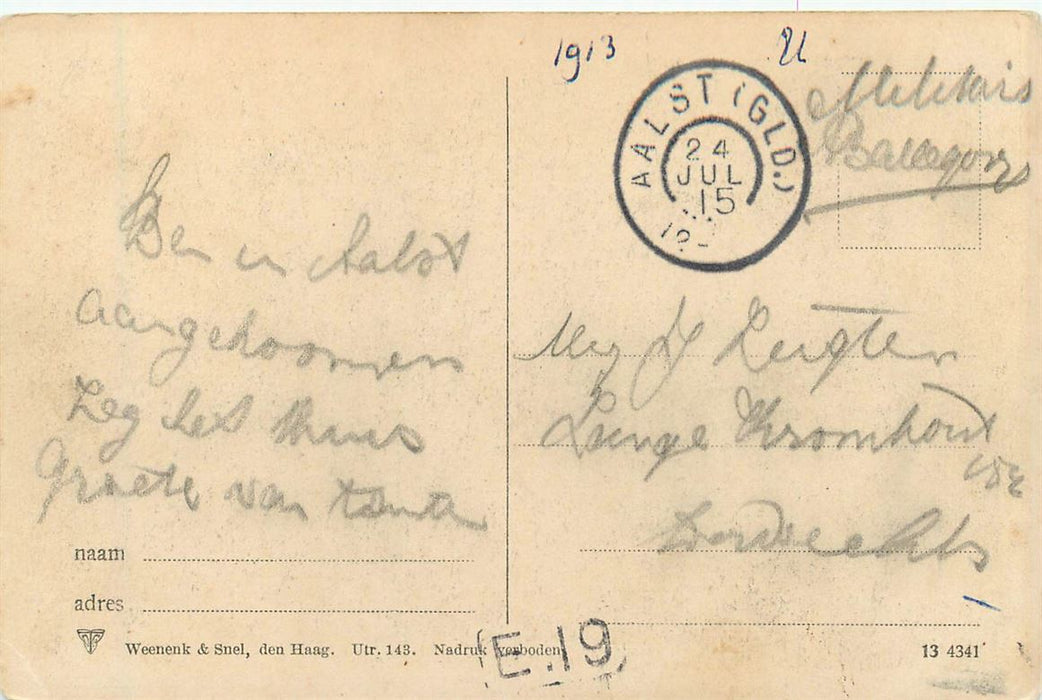 1913
AALST (GLD.)
24
JUL
15
Militair
Ben in Aalst
aangekoomen
Zeg het thuis
Groete van tante
Mej J
Lange Kromhout
Dordrecht
naam
adres
Weenenk & Snel, den Haag. Utr. 143. Nadruk verboden
E.19
13 4341